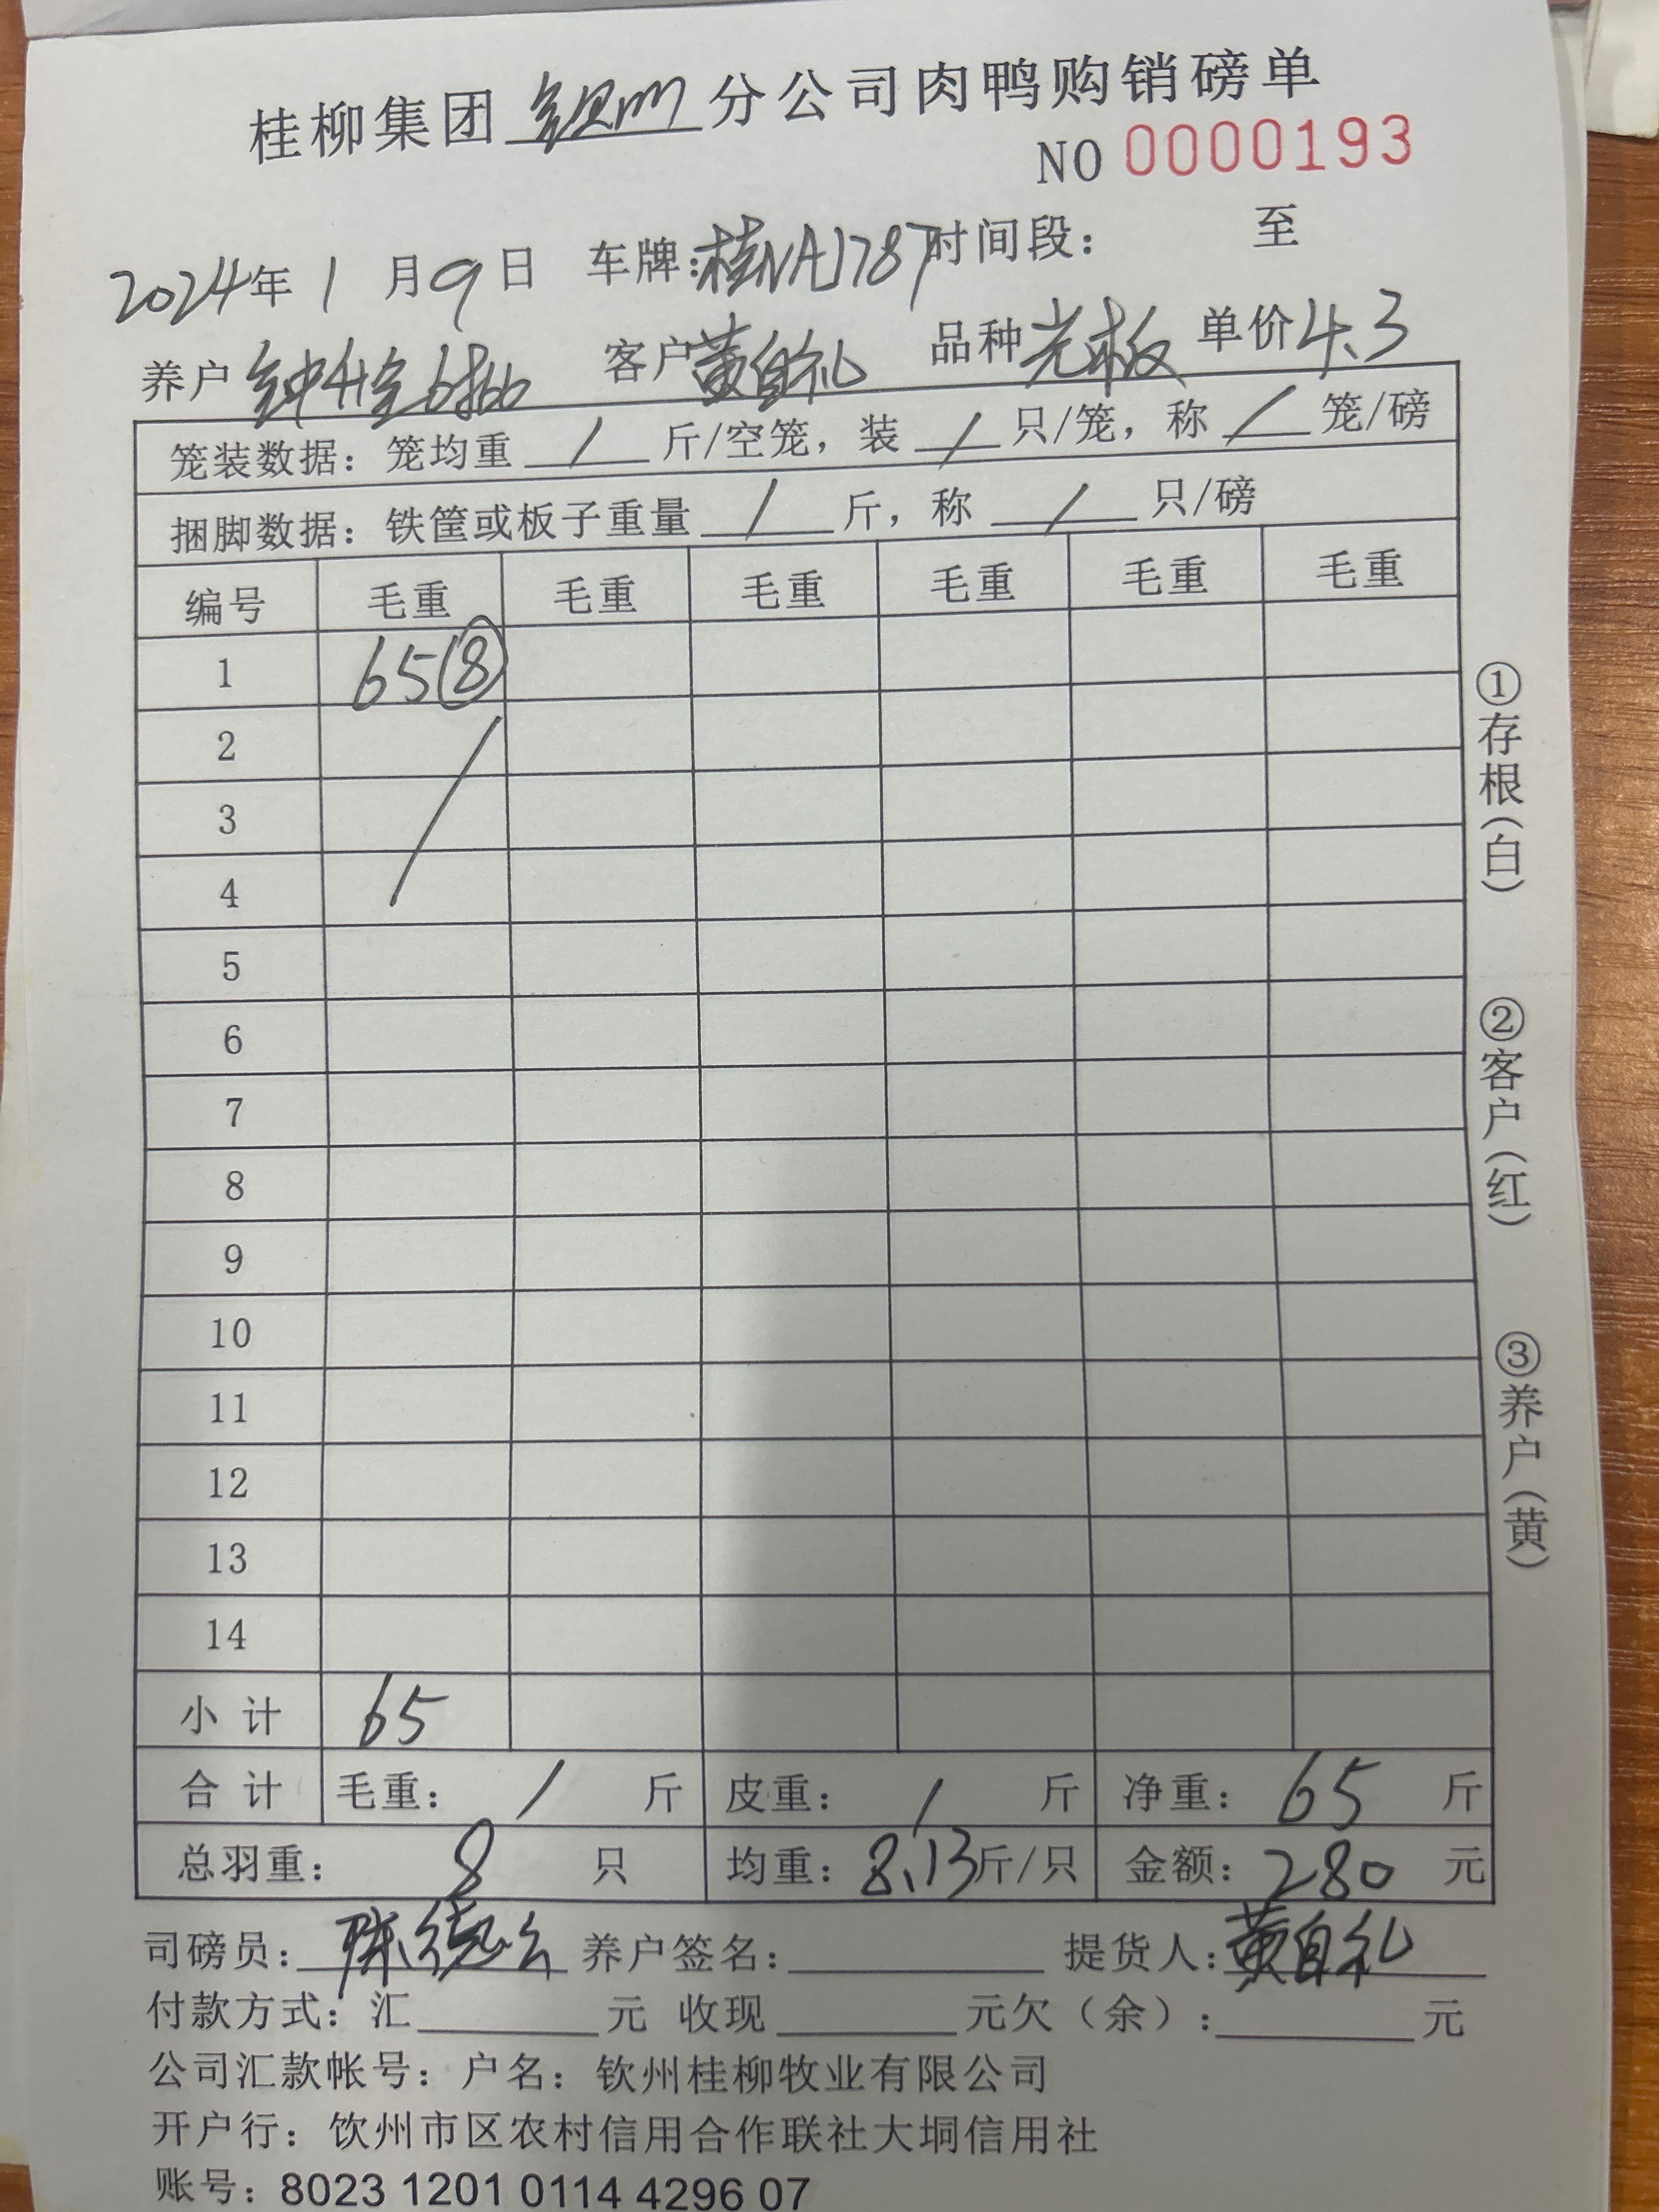 桂柳集团 钦州 分公司肉鸭购销磅单
NO 0000193
2024年 1 月 9 日 车牌:桂NA1787 时间段: 至
养户 6批 客户 黄自礼 品种 光板 单价 4.3
笼装数据: 笼均重 / 斤/空笼, 装 / 只/笼, 称 / 笼/磅
捆脚数据: 铁筐或板子重量 / 斤, 称 / 只/磅
编号 毛重 毛重 毛重 毛重 毛重 毛重
1 65 ⑧
2
3
4
5
6
7
8
9
10
11
12
13
14
小计 65
合计 毛重: / 斤 皮重: / 斤 净重: 65 斤
总羽重: 8 只 均重: 8.13 斤/只 金额: 280 元
司磅员: 养户签名: 提货人: 黄自礼
付款方式: 汇 元 收现 元欠(余): 元
公司汇款帐号: 户名: 钦州桂柳牧业有限公司
开户行: 饮州市区农村信用合作联社大垌信用社
账号: 8023 1201 0114 4296 07
①存根(白)
②客户(红)
③养户(黄)